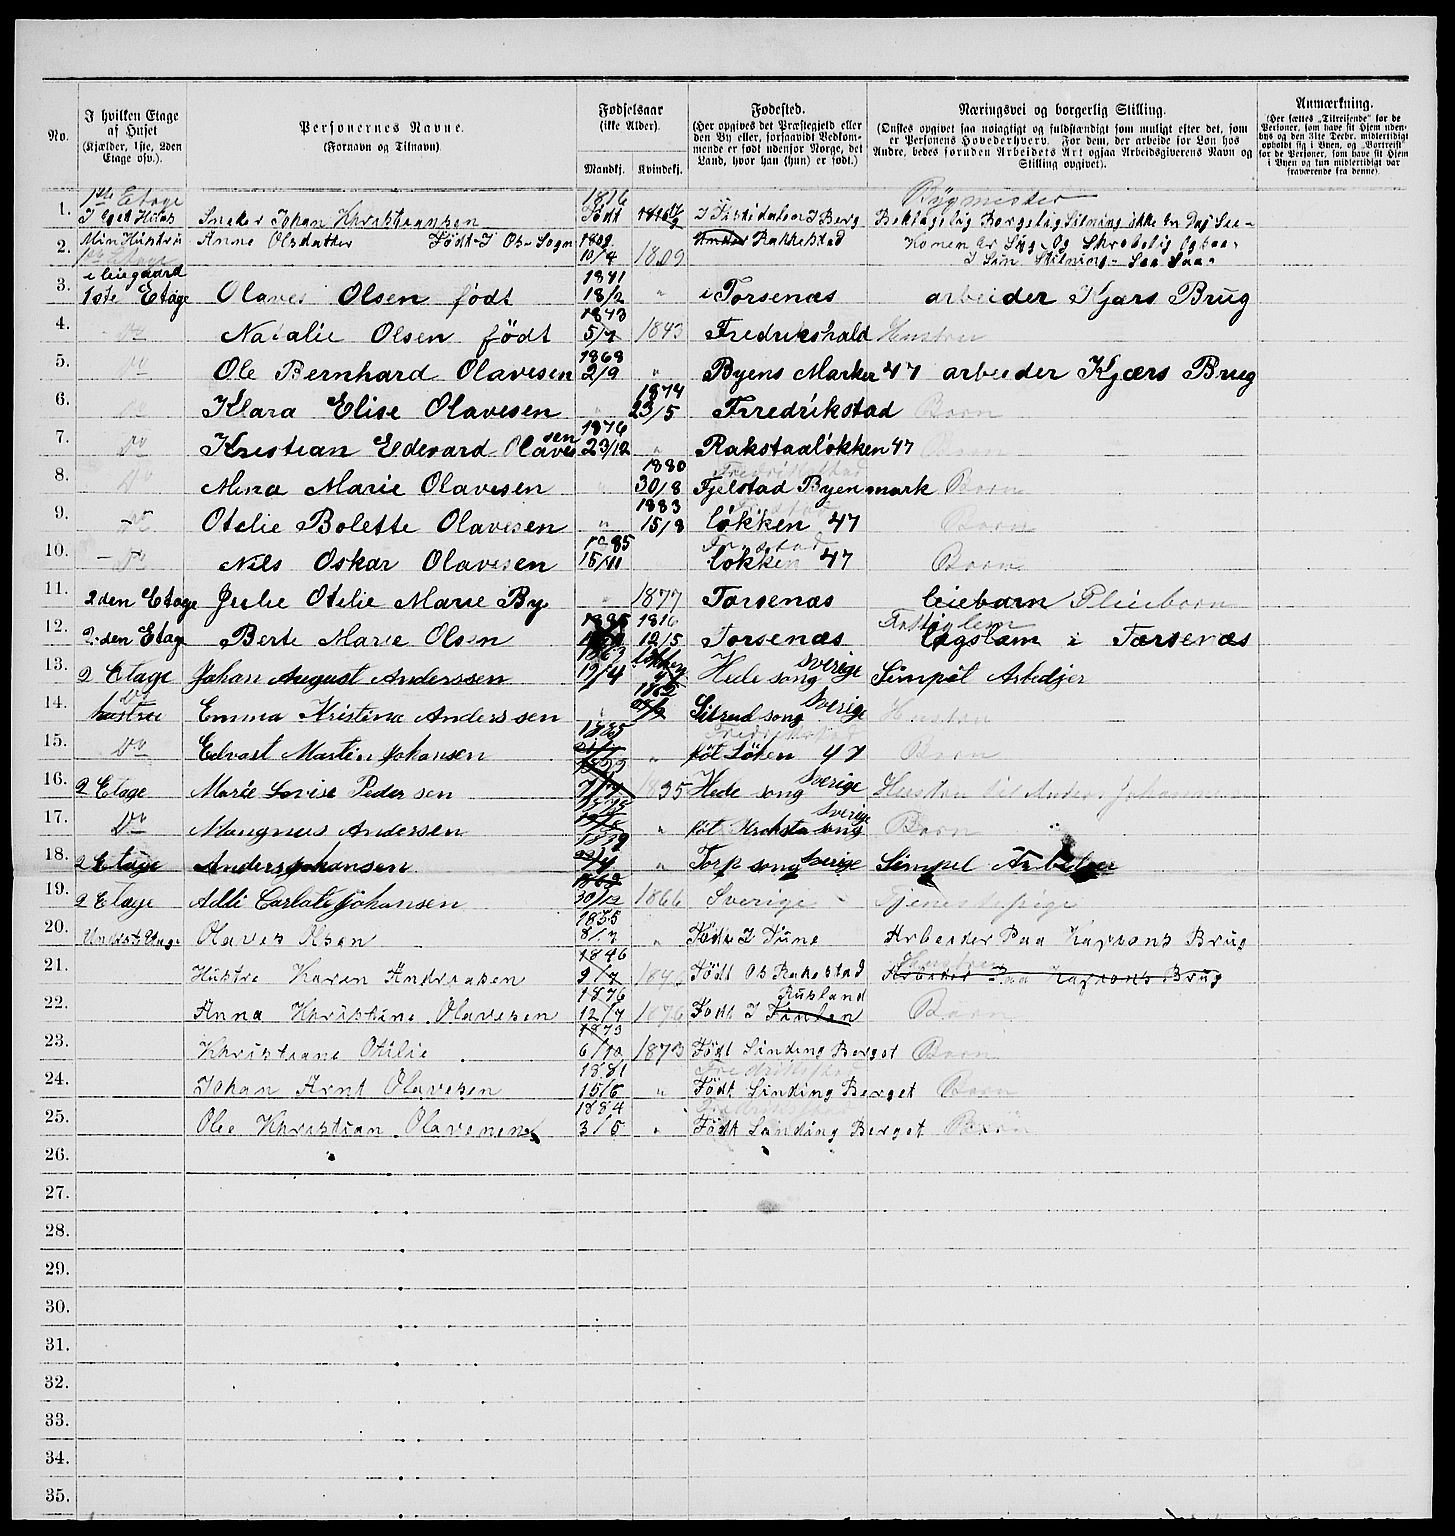 No.
I hvilken Etage af Huset (Kjælder, 1ste, 2den Etage osv.).
Personernes Navne. (Fornavn og Tilnavn).
Fødselsaar (ikke Alder).
Mandkj. Kvindekj.
Fødested. (Her opgives det Præstegjeld eller den By eller, forsaavidt Vedkommende er født udenfor Norge, det Land, hvor han (hun) er født.)
Næringsvei og borgerlig Stilling. (Ønskes opgivet saa nøiagtigt og fuldstændigt som muligt efter det, som er Personens Hovederhverv. For dem, der arbeide for Løn hos Andre, bedes foruden Arbeidets Art ogsaa Arbeidsgiverens Navn og Stilling opgivet).
Anmærkning. (Her sættes „Tilreisende“ for de Personer, som have sit Hjem udenbys og den 31te Decbr. midlertidigt opholdt sig i Byen, og „Bortreist“ for de Personer, som have sit Hjem i Byen og kun midlertidigt var fraværende fra denne).
1. 1ste Etage I Eget Huus Sneker Johan Khristiansen 1816 Født I Berg Bygmester
2. Min Hustru Anne Olsdatter Født I Os-Sogn 1809 10/4 1809 Rakkestad Konen Er Syg Og Skrøbelig
3. i leiegaard 1ste Etage Olaves Olsen født 1841 18/2 " i Torsenæs arbeider Kjærs Brug
4. Do Natalie Olsen født 1843 5/7 1843 Fredrikshald Hustru
5. Do Ole Bernhard Olavesen 1868 2/9 " Byens Marker 47 arbeider Kjærs Brug
6. Do Klara Elise Olavesen " 1874 23/5 Frredrikstad Barn
7. Do Kristian Edevard Olavesen 1876 23/12 " Rakstaaløkken 47 Barn
8. Do Mina Marie Olavesen " 1880 30/8 Fredrikstad Fjelstad Byenmark Barn
9. Do Otelie Bolette Olavesen " 1883 15/8 løkken 47 Barn
10. Do Nils Oskar Olavesen 1885 15/11 løkken 47 Barn
11. 2den Etage Julie Otelie Marie By " 1877 Torsenæs leiebarn Pleiebarn
12. 2den Etage Berte Marie Olsen 1816 12/5 Torsenæs Fattiglem Legslam i Tørsenæs
13. 2 Etage Johan August Anderssen 1863 19/4 Hede song Sverige Simpel Arbedjer
14. Do hustru Emma Kristina Anderssen " 1862 song Sverige Hustru
15. Do Edvart Martin Johansen 1885 " Fredrikstad føt Løken 47 Barn
16. 2 Etage Marie Lovise Pedersen 1835 Hede song Sverige Hustru til Anders Johannesen
17. Do Maugnus Andersen " føt song Sverige Barn
18. 2 Etage Anders Johansen " Torp song Sverige Simpel Arbeider
19. 2 Etage Johansen 30/12 1866 Sverige Tjenestepige
20. Olaves Olsen 1835 8/7 " Føde I Tune Arbeider Paa Brug
21. Hustre Karen Andreasen 1846 9/7 1846 Født Os Rakestad Hustru Arbeider Paa Brug
22. Anna Khristine Olavesen 1876 12/7 1876 Født I Finlen Rusland Barn
23. Khristiane Otilie 1873 6/10 1873 Født Linding Berget Barn
24. Johan Arnt Olavesen 1881 15/6 " Fredrikstad Født Linding Berget Barn
25. Ole Khristian Olavesen 1884 3/5 " Fredrikstad Født Linding Berget Barn
26.
27.
28.
29.
30.
31.
32.
33.
34.
35.